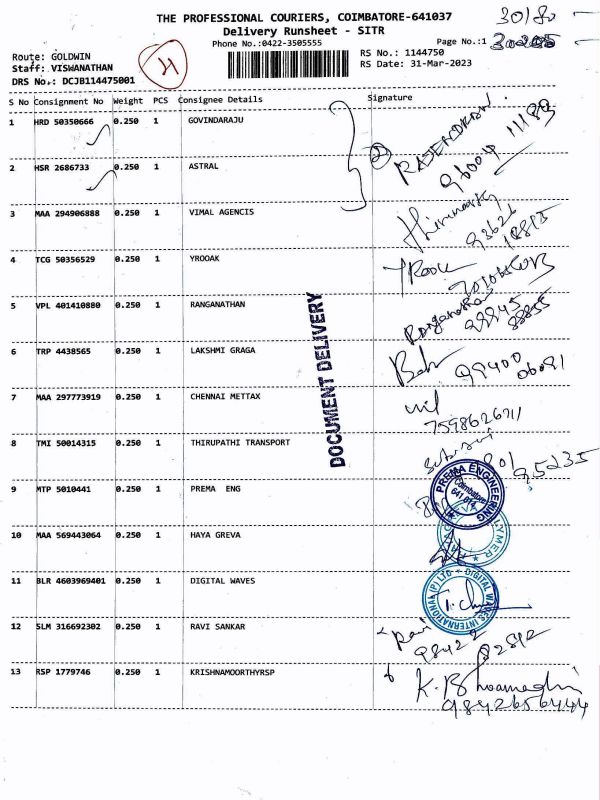 THE PROFESSIONAL COURIERS, COIMBATORE-641037
30/80
Delivery Runsheet - SITR
Phone No.:0422-3505555
Page No.:1
Route: GOLDWIN
RS No.: 1144750
Staff: VISWANATHAN
RS Date: 31-Mar-2023
DRS No.: DCJB114475001
S No Consignment No Weight PCS Consignee Details Signature
1 HRD 50350666 0.250 1 GOVINDARAJU
RAJENDRAN
2 HSR 2686733 0.250 1 ASTRAL
3 MAA 294906888 0.250 1 VIMAL AGENCIS
4 TCG 50356529 0.250 1 YROOAK
5 VPL 401410880 0.250 1 RANGANATHAN
Ranganathan
99945
88855
6 TRP 4438565 0.250 1 LAKSHMI GRAGA
99400
06091
7 MAA 297773919 0.250 1 CHENNAI METTAX
7598626711
DOCUMENT DELIVERY
8 TMI 50014315 0.250 1 THIRUPATHI TRANSPORT
95235
9 MTP 5010441 0.250 1 PREMA ENG
PREMA ENGINEERING
Coimbatore
641 014
10 MAA 569443064 0.250 1 HAYA GREVA
11 BLR 4603969401 0.250 1 DIGITAL WAVES
DIGITAL WAVES INTERNATIONAL (P) LTD
12 SLM 316692302 0.250 1 RAVI SANKAR
Ravi
98422
13 RSP 1779746 0.250 1 KRISHNAMOORTHYRSP
9842656444